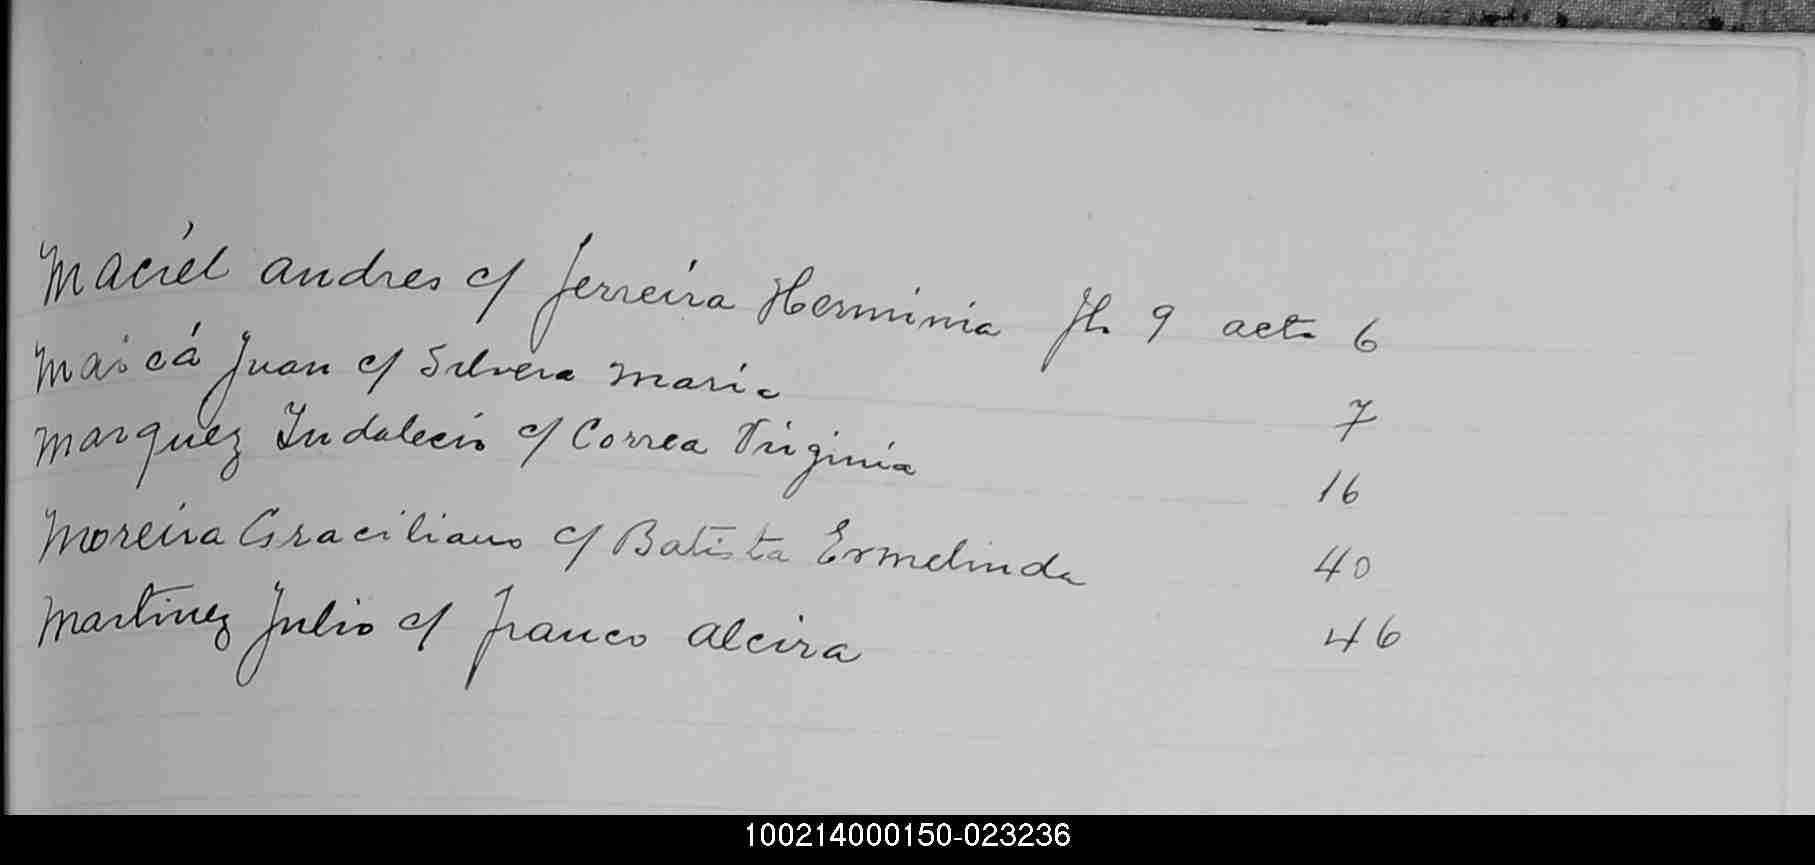 Maciel Andres c/ Ferreira Herminia fl. 9 acta 6
Maicá Juan c/ Silvera Maria 7
Marquez Indalecio c/ Correa Virginia 16
Moreira Graciliano c/ Batista Ermelinda 40
Martinez Julio c/ Franco Alcira 46
100214000150-023236